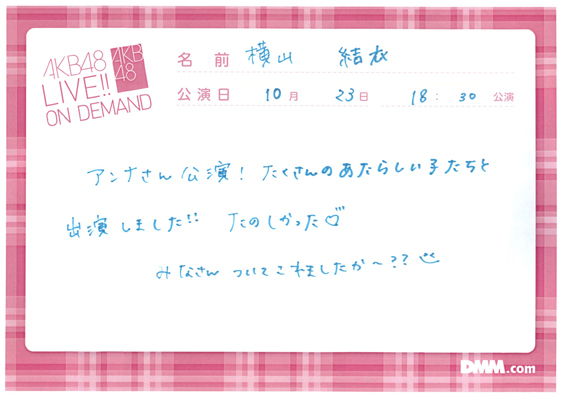 AKB48
LIVE!!
ON DEMAND
AKB
48
名前 横山 結衣
公演日 10月 23日 18:30 公演
アンナさん公演! たくさんのあたらしい子たちと
出演しました!! たのしかった♡
みなさん ついてこれましたか〜??
DMM.com